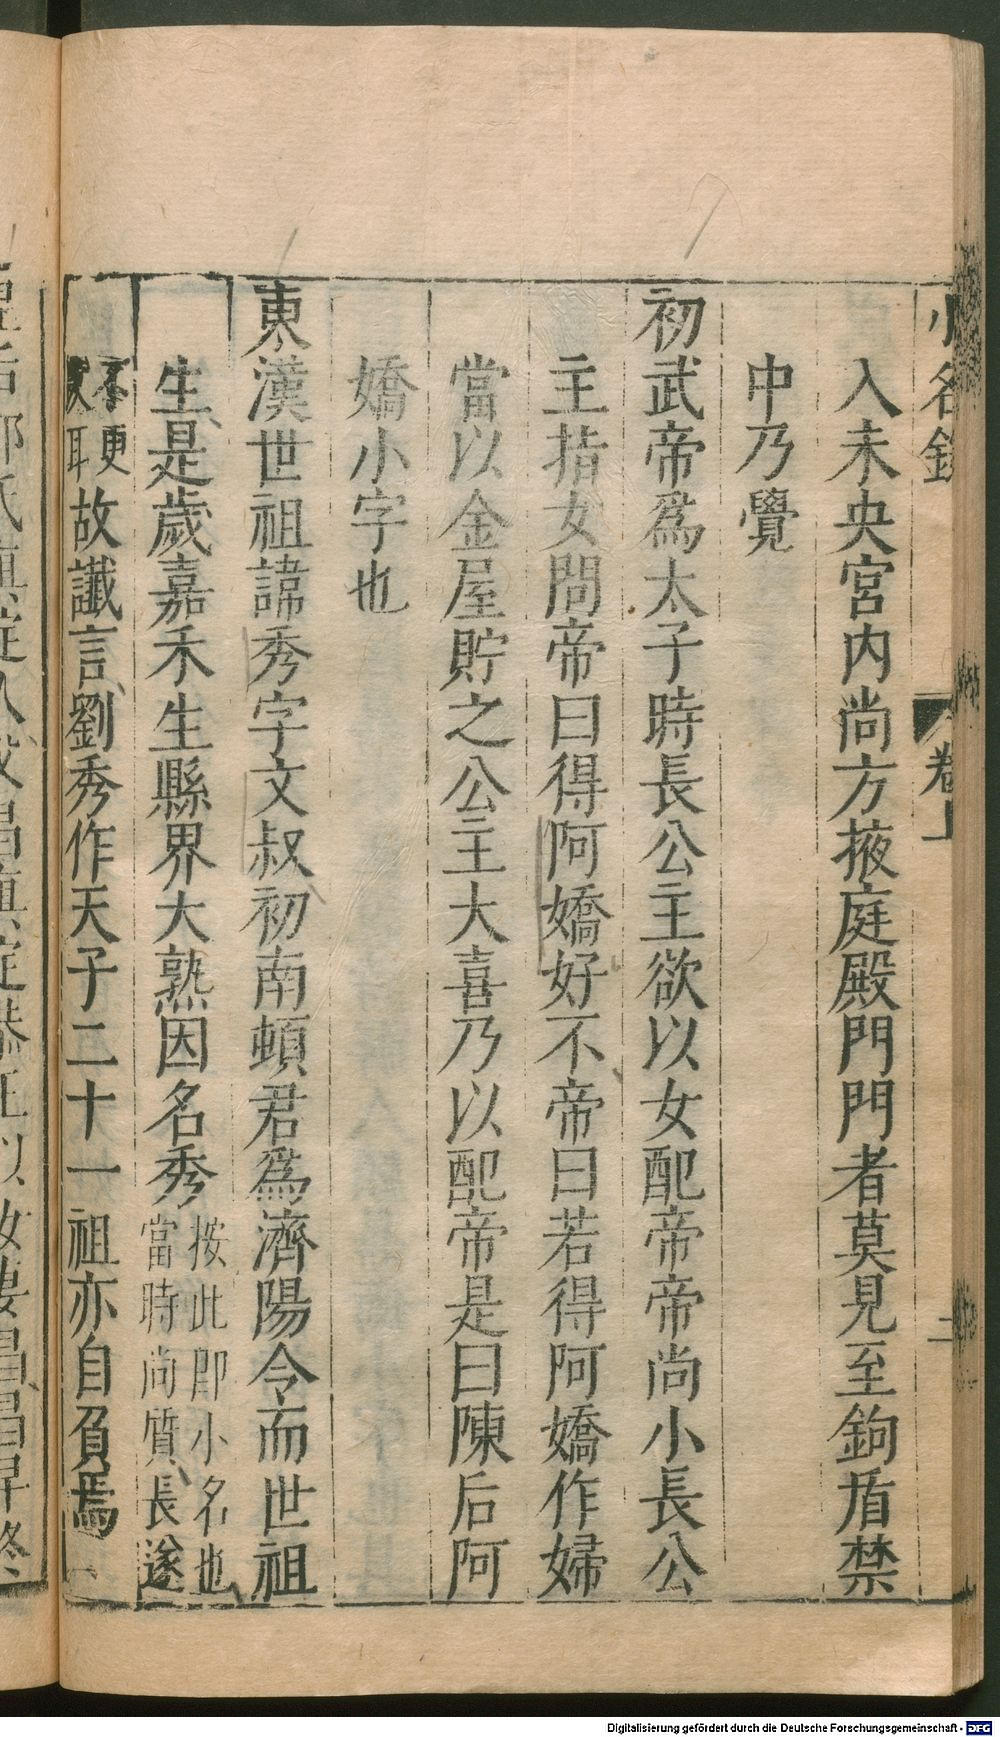 小名錄 卷上 二
入未央宮內尚方掖庭殿門門者莫見至鉤盾禁
中乃覺
初武帝爲太子時長公主欲以女配帝帝尚小長公
主指女問帝曰得阿嬌好不帝曰若得阿嬌作婦
當以金屋貯之公主大喜乃以配帝是曰陳后阿
嬌小字也
東漢世祖諱秀字文叔初南頓君爲濟陽令而世祖
生是歲嘉禾生縣界大熟因名秀按此卽小名也
當時尚質長遂
不更
故讖言劉秀作天子二十一祖亦自負焉
Digitalisierung gefördert durch die Deutsche Forschungsgemeinschaft - DFG